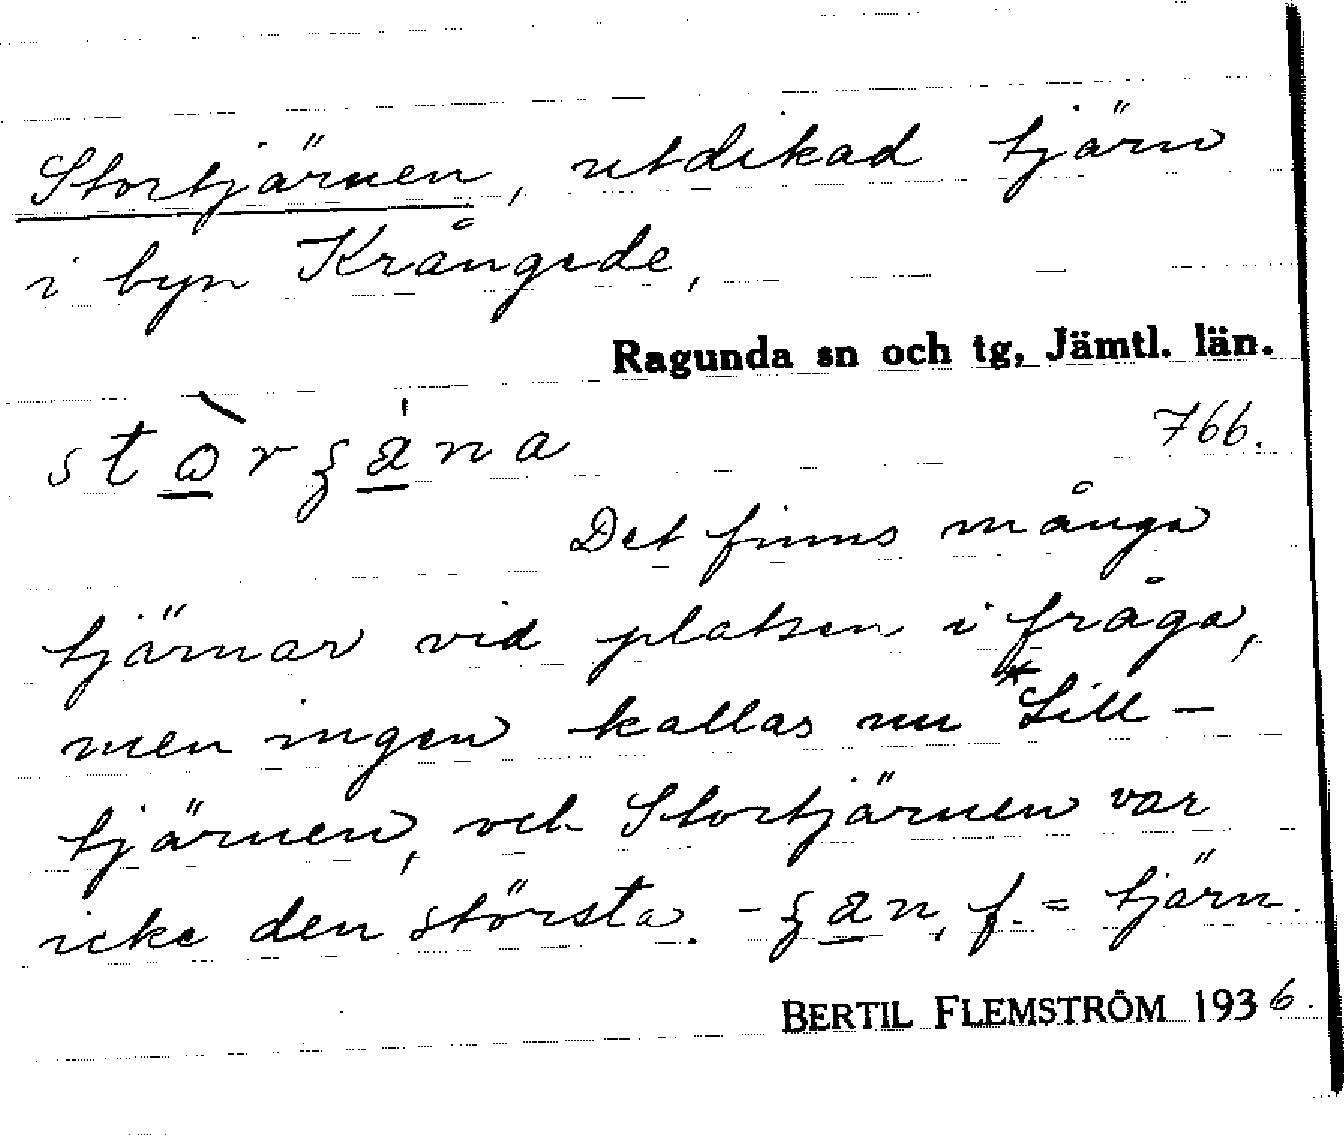 Stortjärnen, utdikad tjärn
i byn Krångede,
Ragunda sn och tg, Jämtl. län.
766.
Det finns många
tjärnar vid platsen i fråga,
men ingen kallas nu *Lill-
tjärnen, och Stortjärnen var
icke den största. f. = tjärn.
BERTIL FLEMSTRÖM 1936.